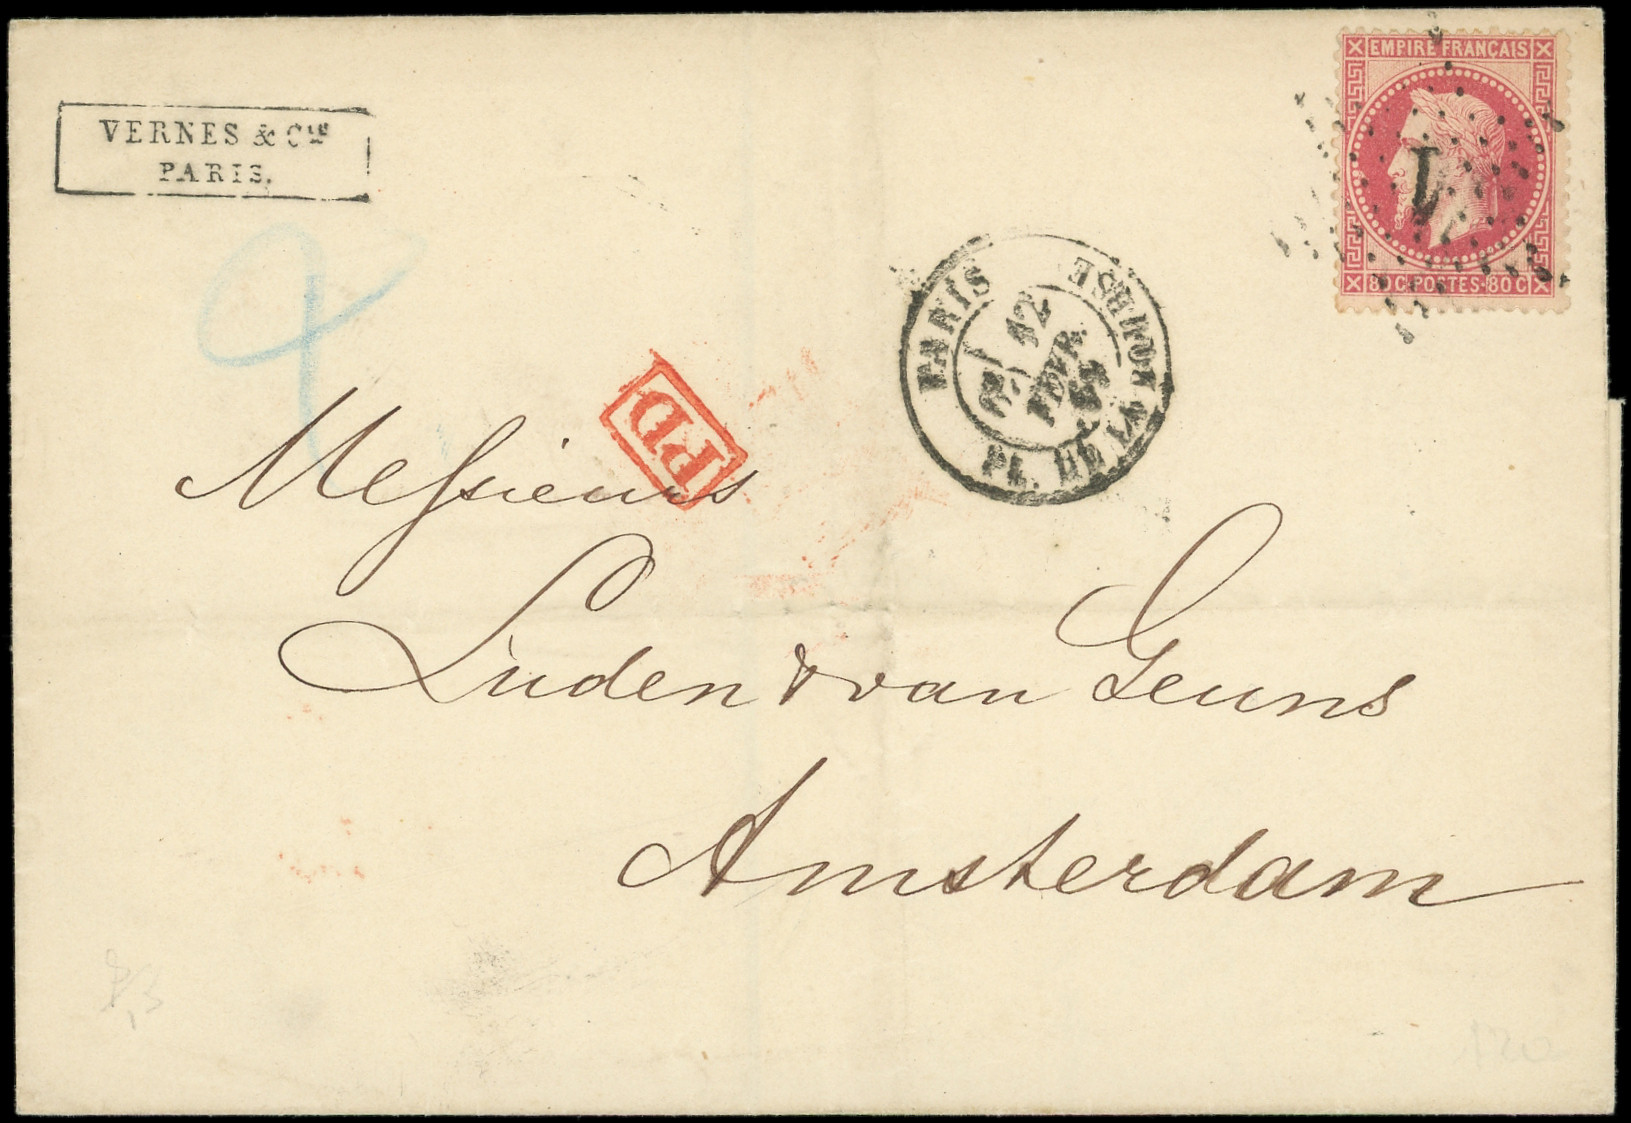 VERNES & Cie
PARIS.
EMPIRE FRANÇAIS
1
80 C POSTES 80 C
PARIS
PL. DE LA BOURSE
12
FEVR.
PD
Messieurs
Luden & van Geuns
Amsterdam
120